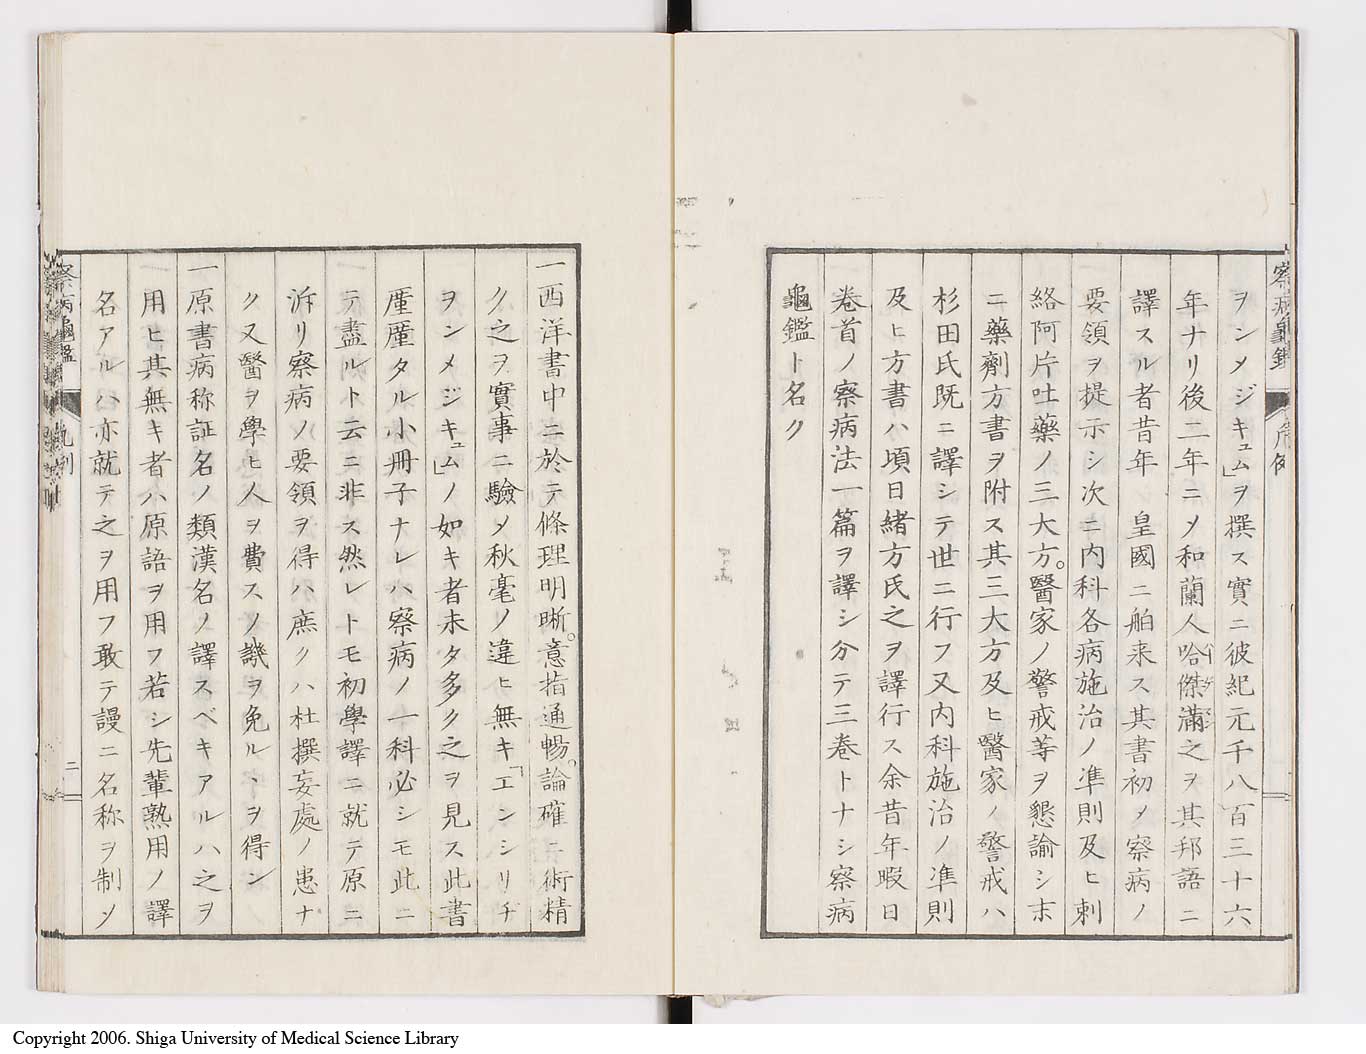 ヲンメジキュム」ヲ撰ス實ニ彼紀元千八百三十六
年ナリ後二年ニ〆和蘭人哈傑滿之ヲ其邦語ニ
譯スル者昔年　皇國ニ舶来ス其書初メ察病ノ
要領ヲ提示シ次ニ内科各病施治ノ準則及ヒ刺
絡阿片吐藥ノ三大方。醫家ノ警戒等ヲ懇諭シ末
ニ藥劑方書ヲ附ス其三大方及ヒ醫家ノ警戒ハ
杉田氏既ニ譯シテ世ニ行フ又内科施治ノ準則
及ヒ方書ハ頃日緒方氏之ヲ譯行ス余昔年暇日
卷首ノ察病法一篇ヲ譯シ分テ三卷トナシ察病
龜鑑ト名ク
一西洋書中ニ於テ條理明晰。意指通暢。論確ニ術精
ク之ヲ實事ニ驗〆秋毫ノ違ヒ無キ「エンシリヂ
ヲンメジキュム」ノ如キ者未タ多ク之ヲ見ス此書
厪厪タル小冊子ナレハ察病ノ一科必シモ此ニ
テ盡ルト云ニ非ス然レトモ初學譯ニ就テ原ニ
泝リ察病ノ要領ヲ得ハ庶クハ杜撰妄處ノ患ナ
ク又醫ヲ學ヒ人ヲ費スノ譏ヲ免ルヽヿヲ得ン
一原書病称証名ノ類漢名ノ譯スベキアルハ之ヲ
用ヒ其無キ者ハ原語ヲ用フ若シ先輩熟用ノ譯
名アルハ亦就テ之ヲ用フ敢テ謾ニ名称ヲ制〆
察病龜鑑
凡例
二
Copyright 2006. Shiga University of Medical Science Library